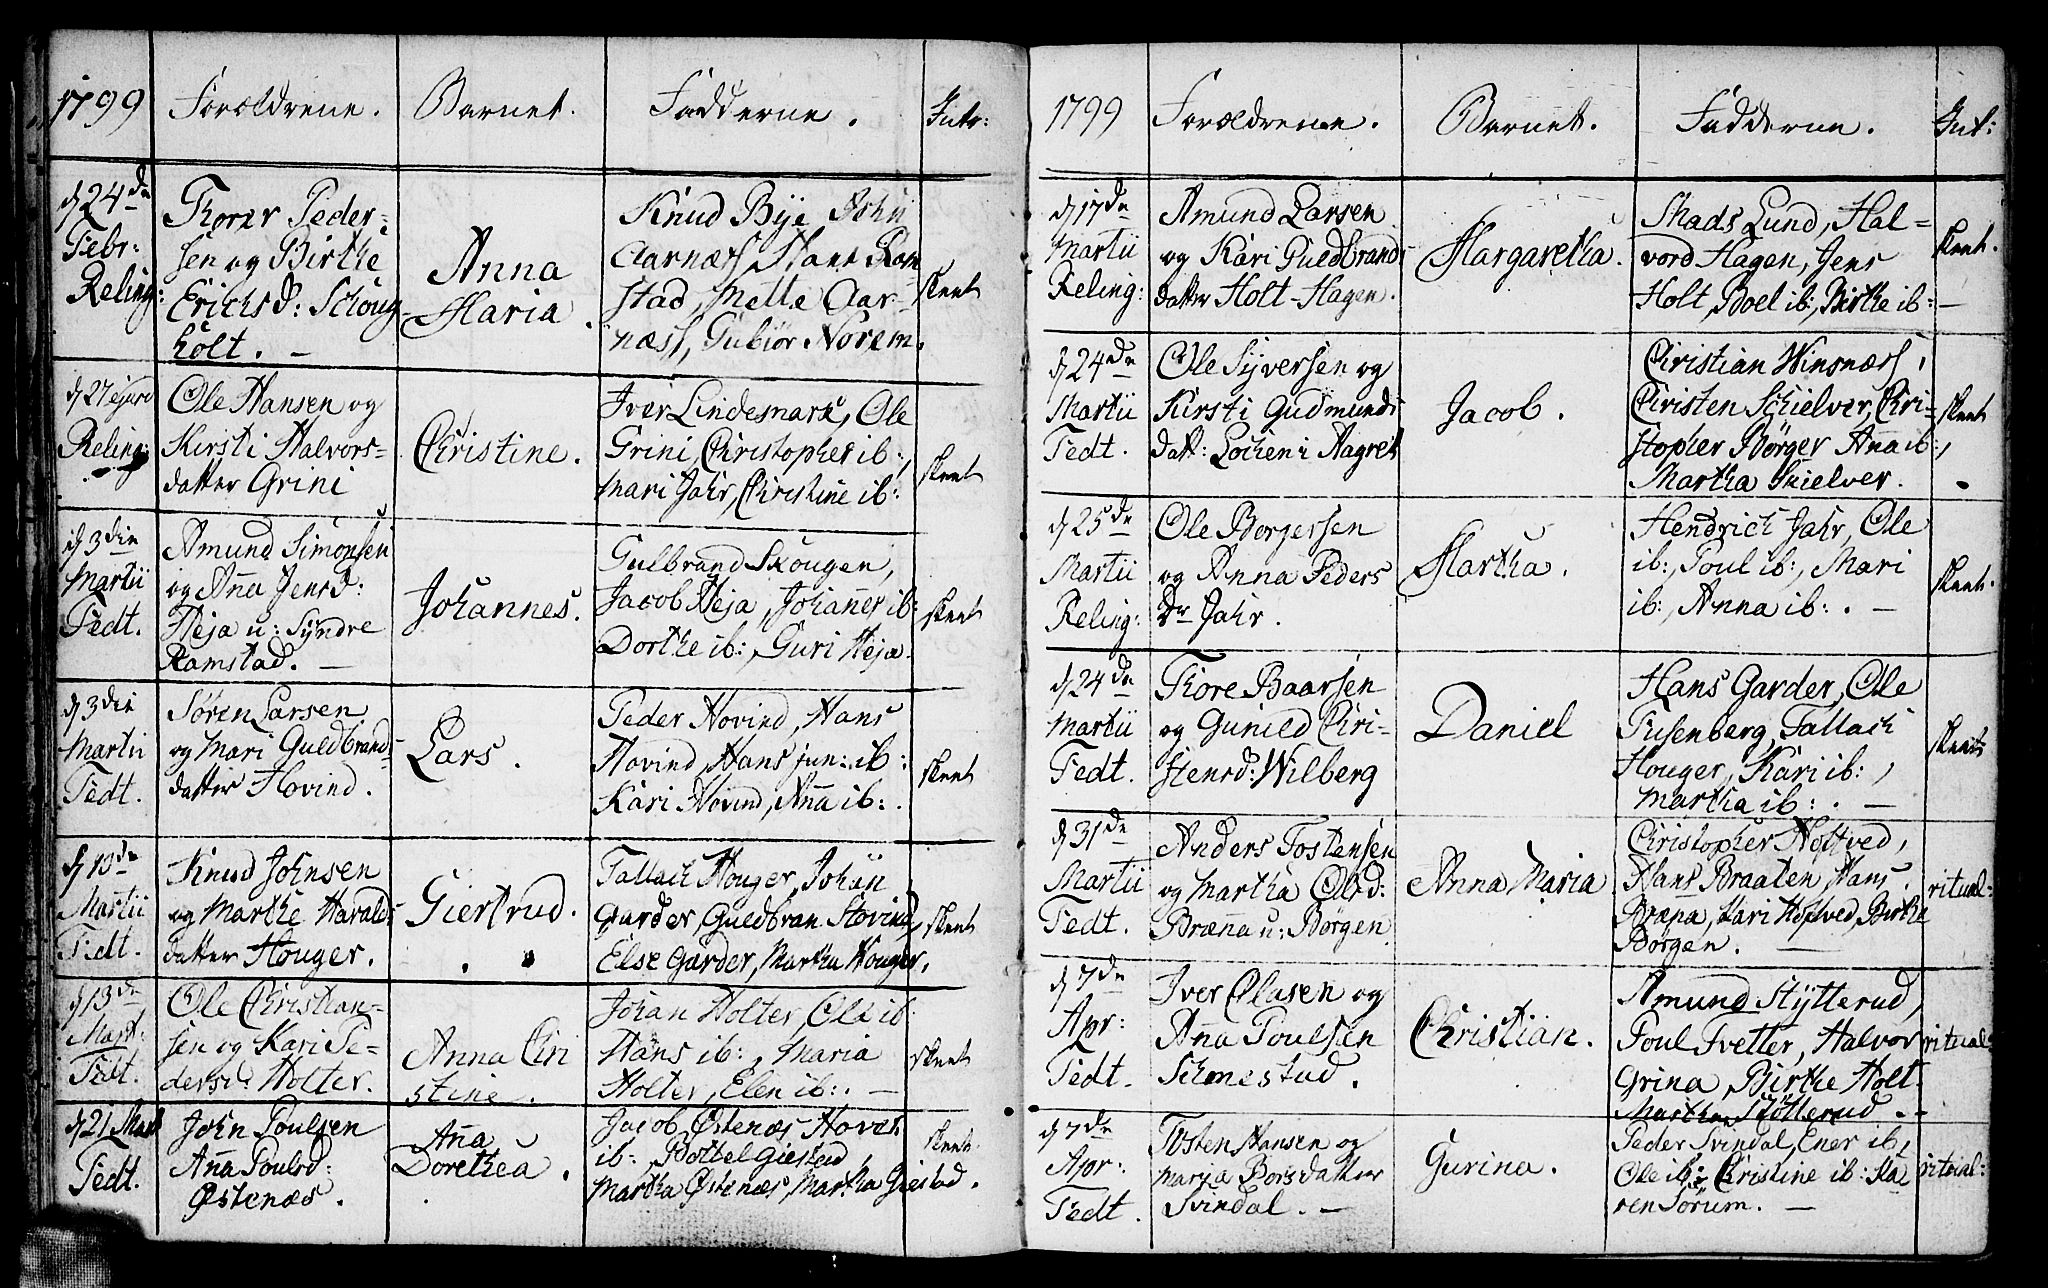 1799
Forældrene.
Barnet.
Fadderne.
Intr:
d 24de
Febr:
Reling:
Thorer Peder-
sen og Birthe
Ericksd: Schoug
holt. -
Anna
Maria.
Knud Bye, John
Aarnæss, Hans Ram
stad, Mette Aar-
næss, Gubiør Norem.
skeet
d 27
Reling:
Ole Hansen og
Kirsti Halvors-
datter Grini
Christine.
Iver Lindesmark, Ole
Grini, Christopher ib:,
Mari Jahr, Christine ib:
skeet
d 3die
Martii
Fedt.
Amund Simonsen
og Anna Jensd:
Heja u: Syndre
Ramstad. -
Johannes.
Gulbrand Skougen,
Jacob Heja, Johannes ib:
Dorthe ib:, Guri Heja.
skeet
d 3die
Martii
Fedt.
Søren Larsen
og Mari Guldbrands-
datter Hovind.
Lars.
Peder Hovind, Hans
Hovind, Hans jun: ib:
Kari Hovind, Anna ib:.
skeet
d 10de
Martii
Fedt.
Knud Johnsen
og Marthe Haralds
datter Houger.
Giertrud.
Tallach Houger, Johan
Garder, Guldbran Hovind,
Else Garder, Martha Houger.
skeet
d 13de
Mart:
Fedt.
Ole Christian-
sen og Kari Pe-
dersd: Holter.
Anna Chri
stine.
Johan Holter, Ole ib:
Hans ib:, Maria
Holter, Elen ib:. -
skeet
d 21 Mart
Fedt.
John Poulsen
Anna Poulsd:
Østenæs.
Anna
Dorethea.
Jacob Østenæs
ib: Bottel Giestad,
Martha Østenæs, Martha Giestad.
skeet
1799
Forældrene.
Barnet.
Fadderne.
Int:
d 17de
Martii
Reling:
Amund Larsen
og Kari Guldbrands
datter Holt-Hagen.
Margaretha.
Mads Lund, Hal-
vord Hagen, Jens
Holt, Boel ib:, Birthe ib:
skeet.
d 24de
Martii
Fedt.
Ole Syversen og
Kirsti Gudmunds
datt: Lochen i Aagret
Jacob.
Christian Winsnæss,
Christen Schielver, Chri-
stopher Børger Anna ib:,
Martha Skielver.
skeet
d 25de
Martii
Reling:
Ole Borgersen
og Anna Peders
Dr Jahr.
Martha.
Hendrich Jahr, Ole
ib:, Poul ib:, Mari
ib:, Anna ib:. -
skeet.
d 24de
Martii
Fedt.
Thore Baarsen
og Gunild Chri-
stensd: Wilberg
Daniel
Hans Garder, Ole
Tusenberg, Tallach
Houger, Kari ib:,
Martha ib:. -
skeet
d 31de
Martii
Fedt.
Anders Tostensen
og Martha Olsd:
Brænna u: Børgen
Anna Maria
Christopher Hoftved,
Hans Braaten, Hans
Brænna, Kari Hoftved, Birthe
Børgen. -
ritual:
d 7de
Apr:
Fedt.
Iver Olasen og
Anna Poulsen
Schonestad.
Christian.
Amund Støtterud,
Poul Tvetter, Halvor
Grina, Birthe Holt
Martha Støtterud. -
ritual:
d 7de
Apr:
Fedt.
Tosten Hansen og
Maria Borsdatter
Svindal. -
Gurina.
Peder Svindal, Ener ib,
Ole ib: Christine ib: Ka
ren Sørum. -
ritual: